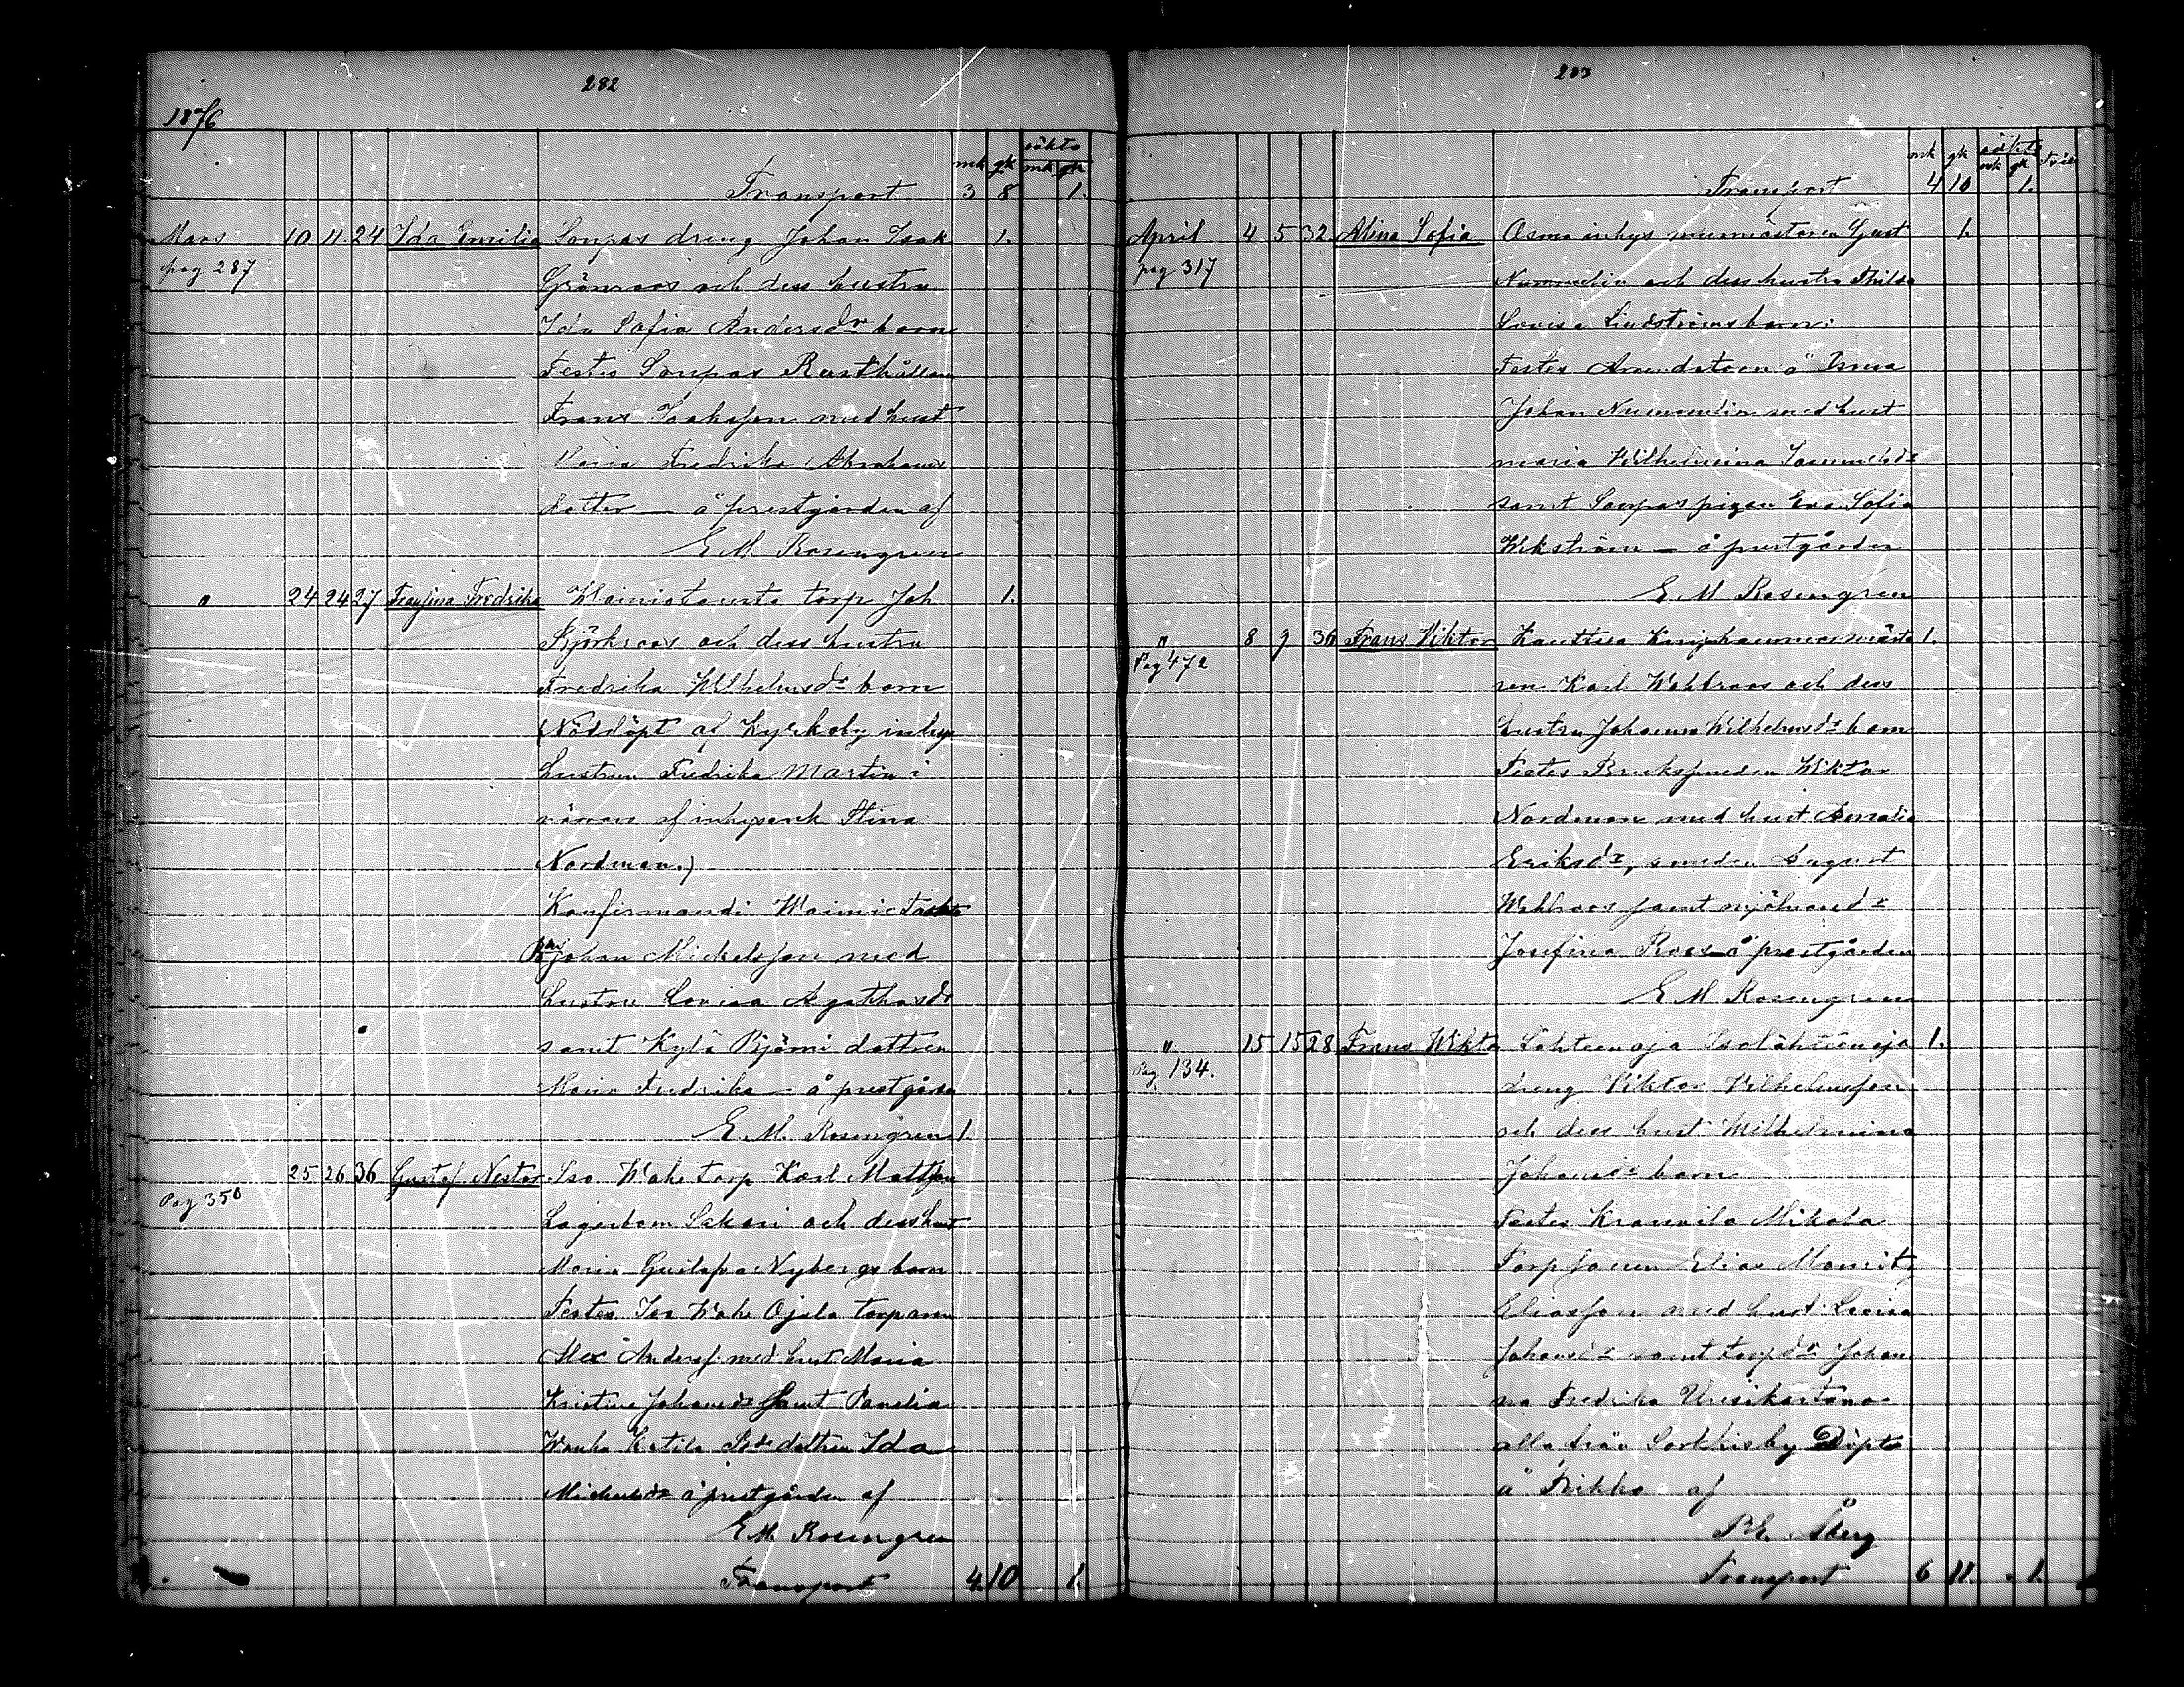 282
1876
äkta
mk gk mk gk
Transport 3 8 1.
Mars 10 11 24 Ida Emilia Sonpas dreng Johan Isak 1.
pag 287 Grönroos och dess hustru
Ida Sofia Andersdr barn
Testes Sonpas Rusthållaren
Frans Isaksson med hust
Maria Fredrika Abrahams
dotter — å prestgården af
E. M. Rosengren
" 24 24 27 Josefina Fredrika torp Joh 1.
Björkroos och dess hustru
Fredrika Wilhelmsdr barn
(Nöddöpt af Kyrkoby inhys
hustrun Fredrika Martin i
närvaro af inhysenk Stina
Nordman.)
Konfirmandi
Johan Mickelsson med
hustru Lovisa Agathasdr
samt Kylä Björni dottren
Maria Fredrika — å prestgården
E. M. Rosengren 1.
25 26 36 Gustaf Nestor Iso Wahe torp Karl Mattsson
Pag 350 Lagerbom Sakari och dess hust
Maria Gustafva Nybergs barn
Testes Iso Wahe Ojala torparen
Alex Anderss. med hust Maria
Kristina Johansdr samt Panelia
Wanha Katila dottren Ida
Mickelsdr å prestgården af
E. M. Rosengren
Transport 4 10 1.
283
äkta
mk gk mk gk
Transport 4 10 1.
April 4 5 32 Alina Sofia Osma inhys murmästaren Gust 1.
pag 317 Nummelin och dess hustru Thilda
Lovisa Lindströms barn.
Testes Arrendatorn å Irma
Johan Nummelin med hust
Maria Wilhelmina Sammelsdr
samt Sonpas pigan Eva Sofia
Wikström — å prestgården
E. M. Rosengren
" 8 9 36 Frans Viktor Kauttua Knipphammarsmästa 1.
Pag 472 ren Karl Wahlroos och dess
hustru Johanna Wilhelmsdr barn
Testes Brukssmeden Wiktor
Nordman med hust Amalia
Eriksdr, smeden August
Wahlroos samt mjölnaredr
Josefina Roos å prestgården
E. M. Rosengren
" 15 15 28 Frans Wikto Lähteenoja Isolähteenoja 1.
Pag 134. dreng Viktor Vilhelmsson
och dess hust Wilhelmina
Johansdr barn
Testes Krannila Mikola
Torpsonen Elias Mauritz
Eliasson med hust. Lovisa
Johansdr samt torpdr Johan
na Fredrika Uusikartano
alla från Sorkkisby Döpt
å Trikko af
Åberg
Transport 6 11. 1.